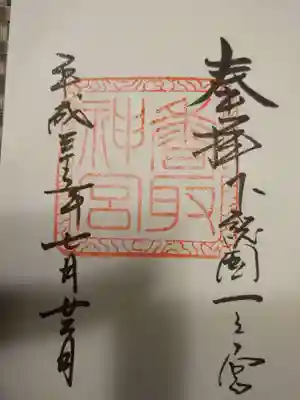 奉拝下総國一之宮
香取神宮
平成三十年七月廿二日